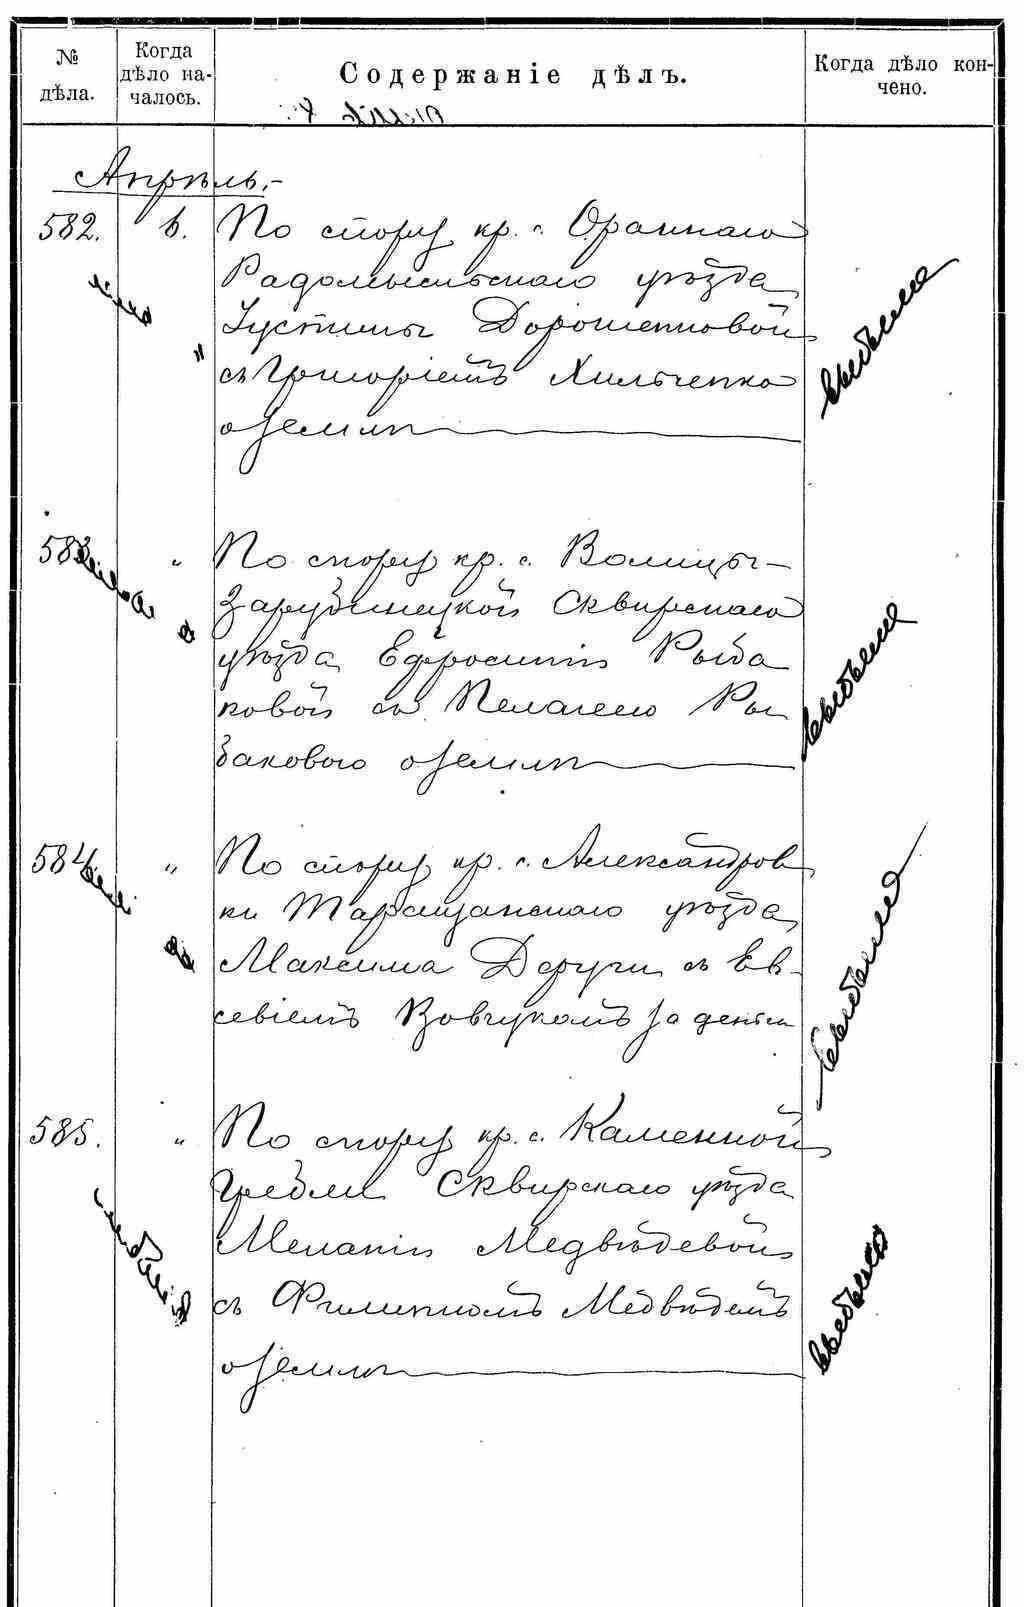 № дѣла.
Когда дѣло на-
чалось.
Содержаніе дѣлъ.
Когда дѣло кон-
чено.
Апрѣль.-
582. 6. По спору кр. с. Ораннаго
Радомысльскаго уѣзда
Іустины Дорошенковой
съ Григоріемъ Хильченко
о землѣ
583 " По спору кр. с. Волицы-
Зарубинецкой Сквирскаго
уѣзда Ефросиніи Рыба
ковой съ Пелагеею Ры
баковою о землѣ
584 " По спору кр. с. Александров
ки Таращанскаго уѣзда
Максима Деруги съ Ев-
севіемъ Вовчукомъ за деньги
585. " По спору кр. с. Каменной
Гребли Сквирскаго уѣзда
Меланіи Медвѣдевой
съ Филиппомъ Медвѣдемъ
о землѣ